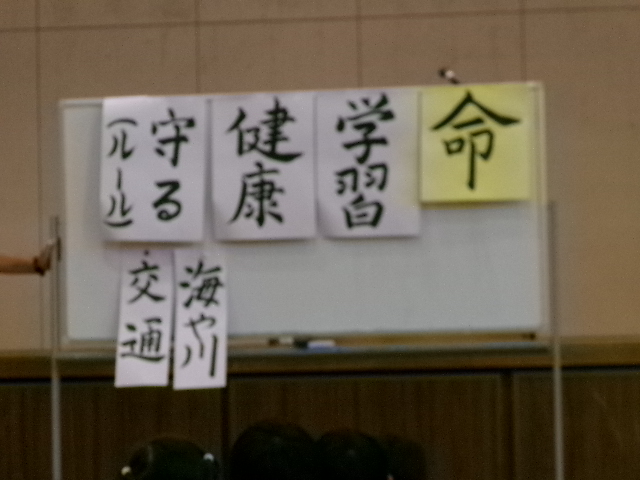 命
学習
健康
守る
(ルール)
海や川
交通